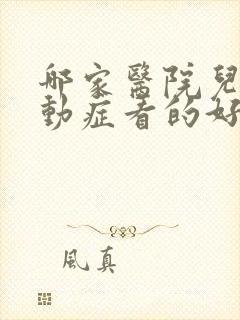 哪家醫院兒
動症看的好
風真